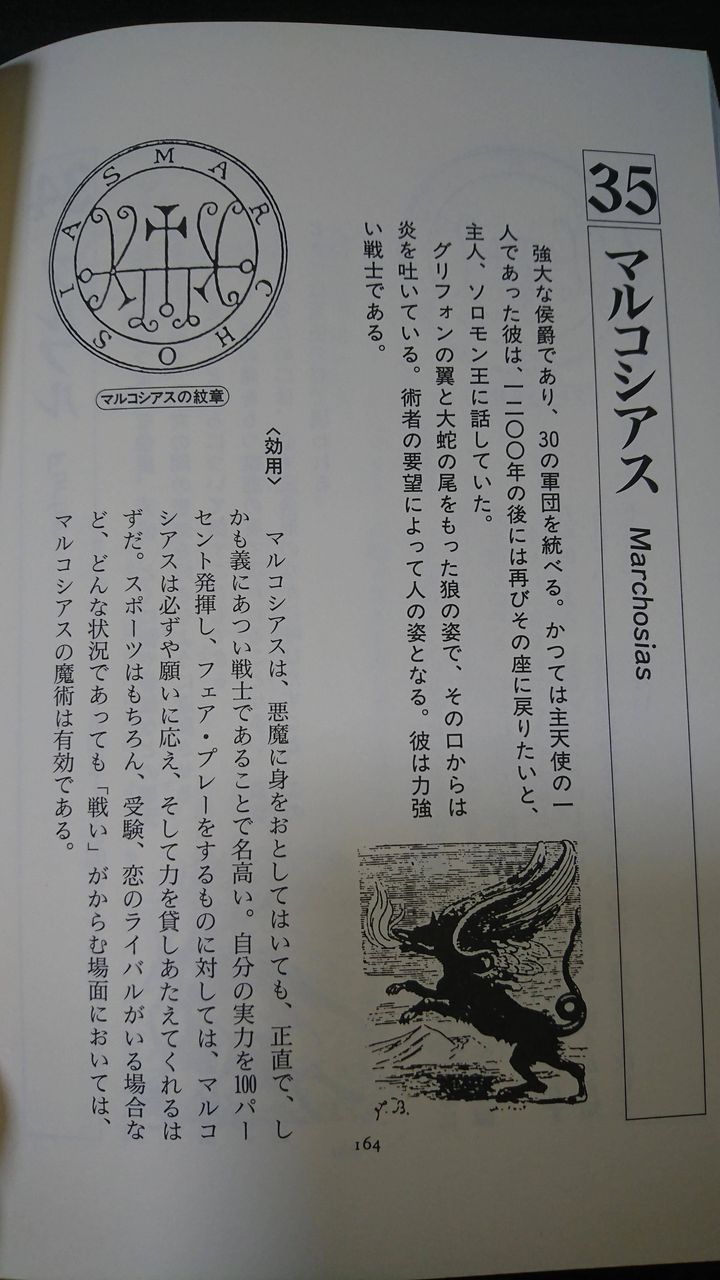 35
マルコシアス Marchosias
強大な侯爵であり、30の軍団を統べる。かつては主天使の一
人であった彼は、一二〇〇年の後には再びその座に戻りたいと、
主人、ソロモン王に話していた。
グリフォンの翼と大蛇の尾をもった狼の姿で、その口からは
炎を吐いている。術者の要望によって人の姿となる。彼は力強
い戦士である。
MARCHOSIAS
マルコシアスの紋章
〈効用〉
マルコシアスは、悪魔に身をおとしてはいても、正直で、し
かも義にあつい戦士であることで名高い。自分の実力を100パー
セント発揮し、フェア・プレーをするものに対しては、マルコ
シアスは必ずや願いに応え、そして力を貸しあたえてくれるは
ずだ。スポーツはもちろん、受験、恋のライバルがいる場合な
ど、どんな状況であっても「戦い」がからむ場面においては、
マルコシアスの魔術は有効である。
L.B.
164